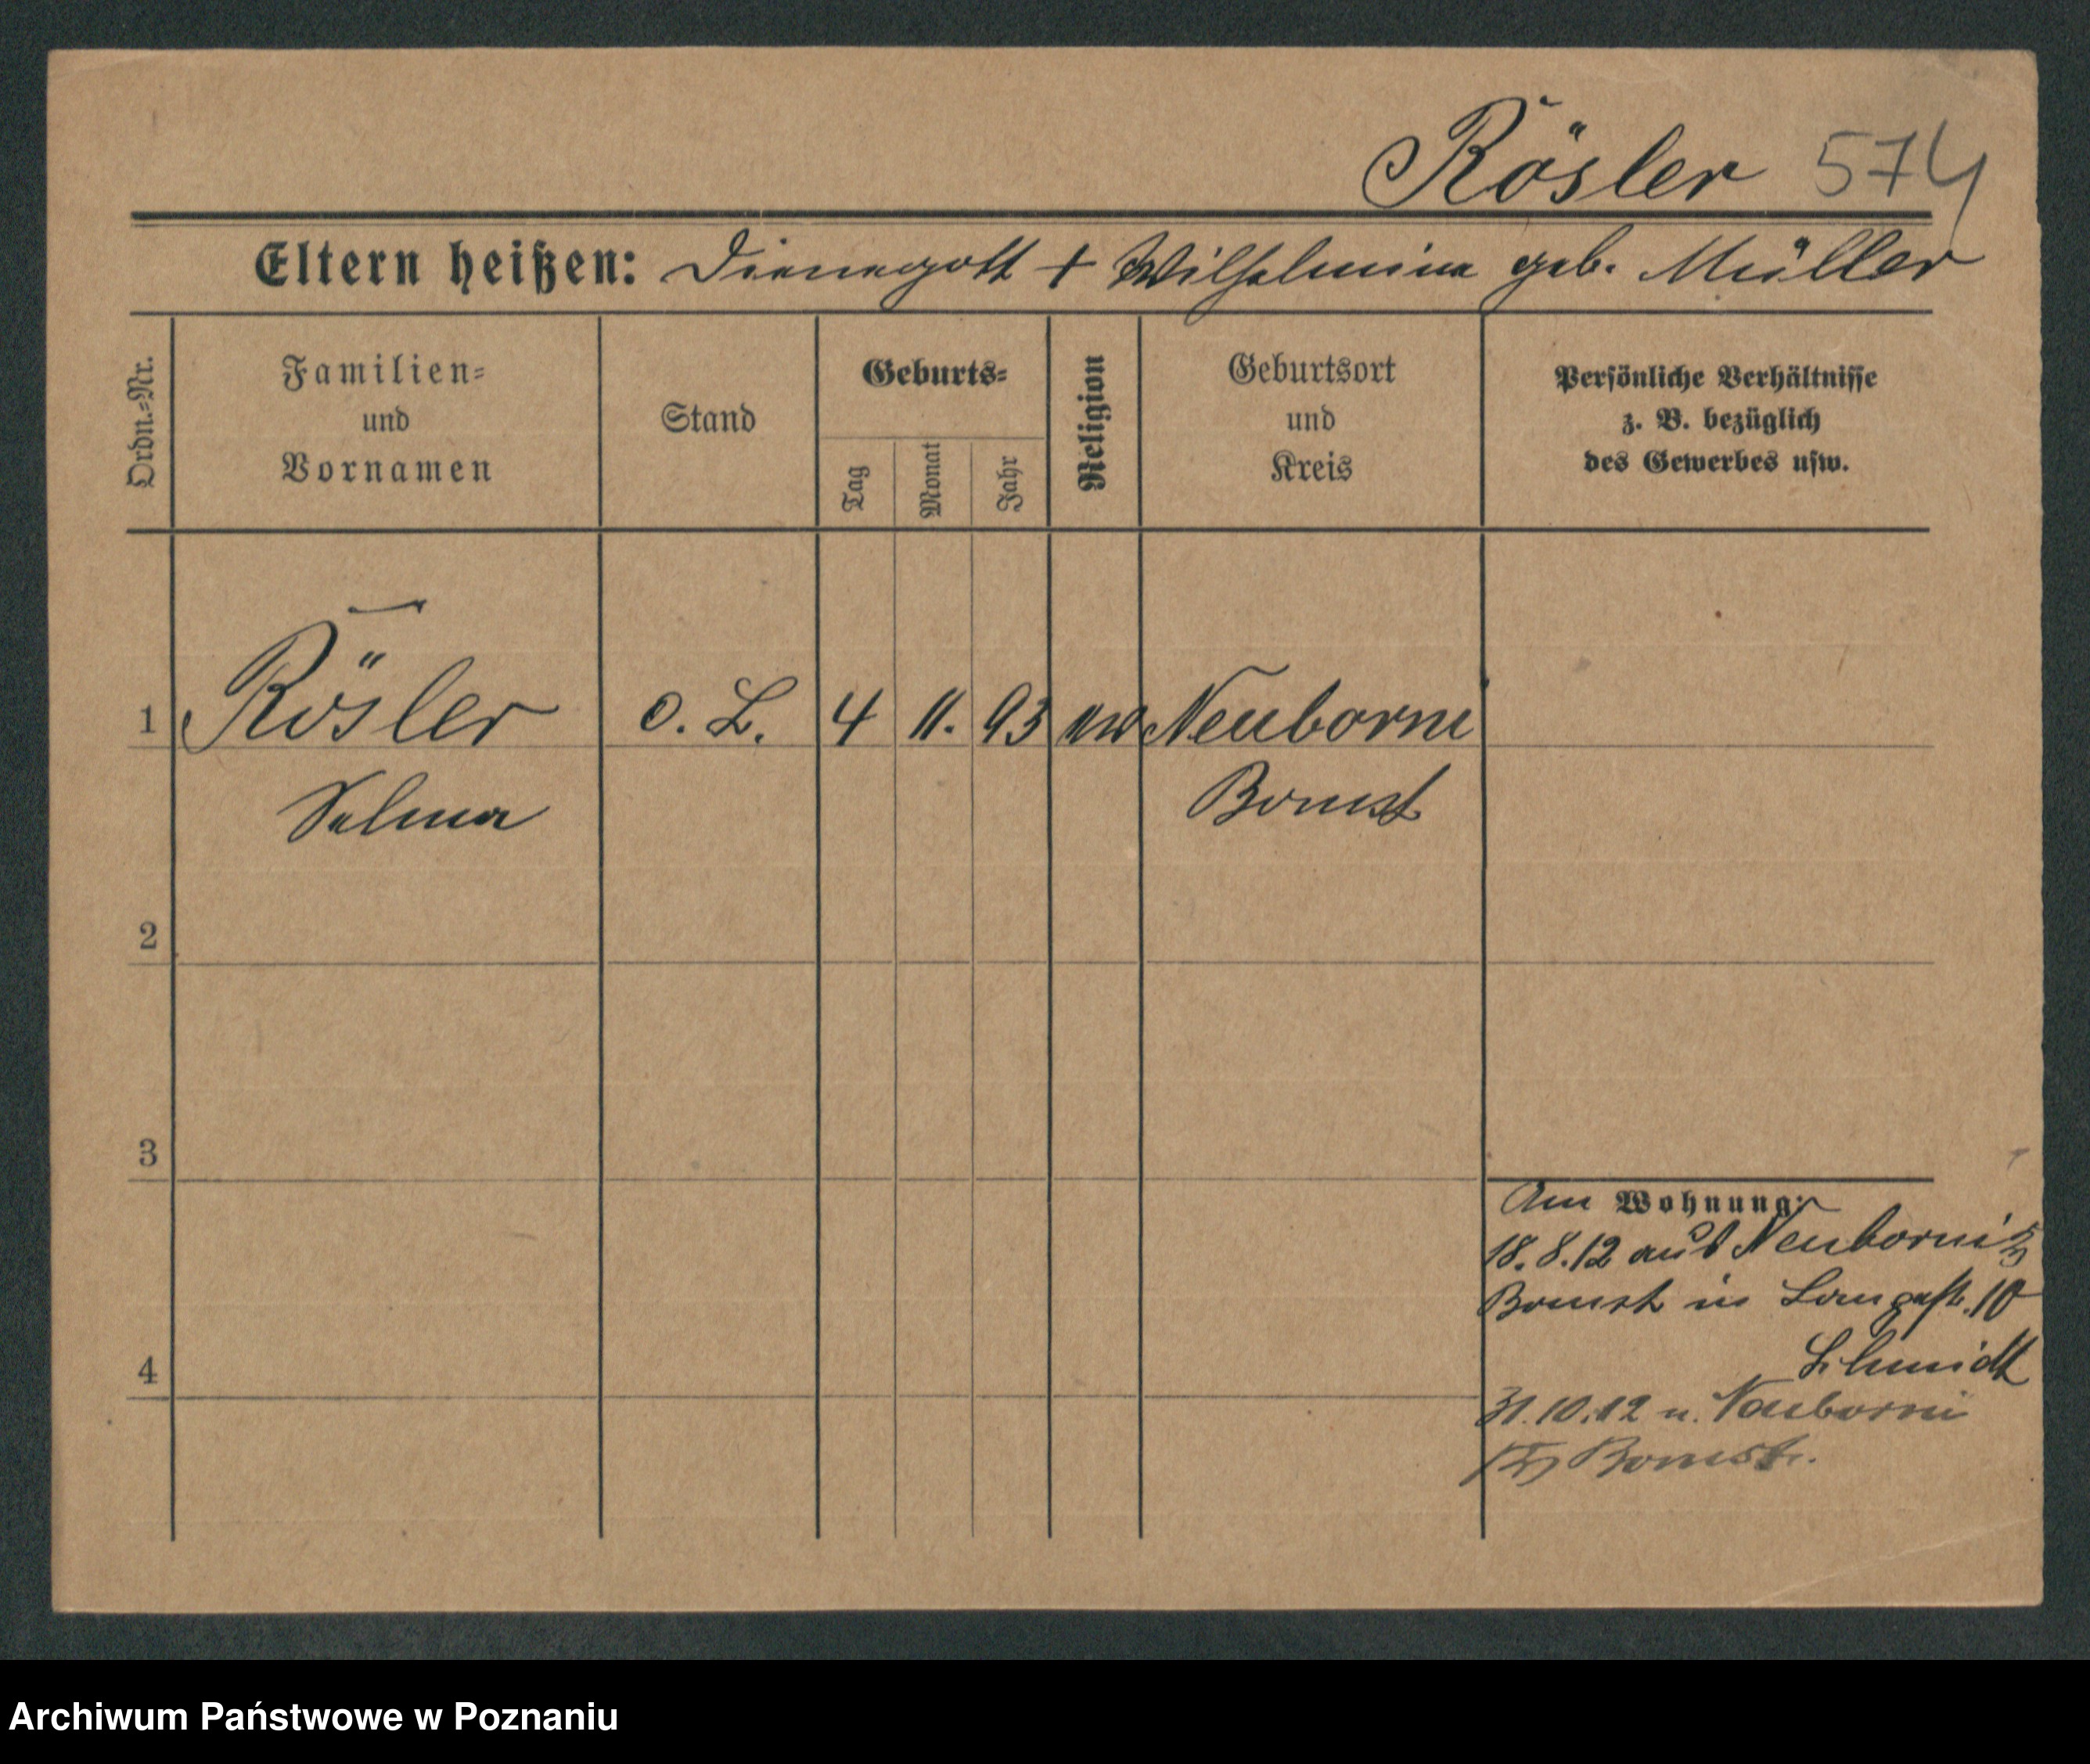 Rösler 574
Eltern heißen: Dienegott + Wilhelmine geb. Müller
Ordn.-Nr.
Familien-
und
Vornamen
Stand
Geburts-
Tag
Monat
Jahr
Religion
Geburtsort
und
Kreis
Persönliche Verhältnisse
z. B. bezüglich
des Gewerbes usw.
1 Rösler o. L. 4 11. 93 Neuborni
Selma Bomst
2
3
4
Am Wohnung:
18.8.12 aus Neuborni
Bomst in Langestr. 10
Schmidt
31.10.12 n. Neuborni
Bomst.
Archiwum Państwowe w Poznaniu